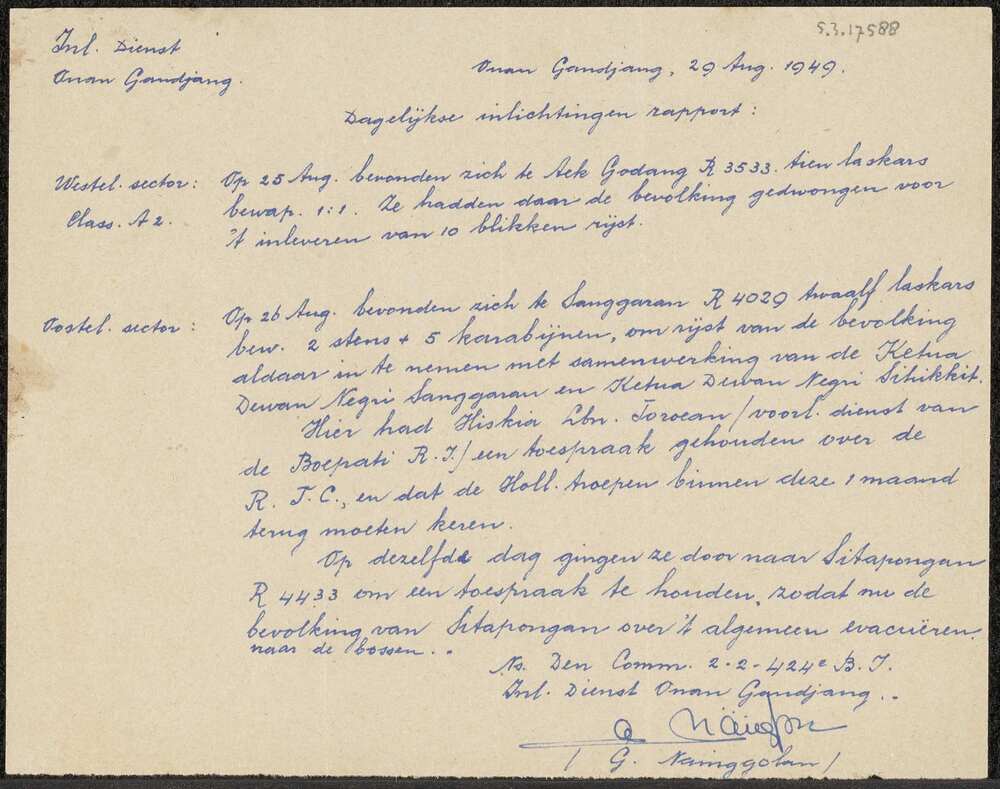 5.3.17588
Inl. Dienst
Onan Gandjang.
Onan Gandjang, 29 Aug. 1949.
Dagelijkse inlichtingen rapport:
Westel. sector:
Class. A2.
Op 25 Aug. bevonden zich te Aek Godang R 3533. tien laskars
bewap. 1:1. Ze hadden daar de bevolking gedwongen voor
't inleveren van 10 blikken rijst.
Oostel. sector:
Op 26 Aug. bevonden zich te Sanggaran R 4029 twaalf laskars
bew. 2 stens + 5 karabijnen, om rijst van de bevolking
aldaar in te nemen met samenwerking van de Ketua
Dewan Negri Sanggaran en Ketua Dewan Negri Sihikkit.
Hier had Hiskia Lbn. Toroean / voorl. dienst van
de Boepati R.I./ een toespraak gehouden over de
R.T.C., en dat de Holl. troepen binnen deze 1 maand
terug moeten keren.
Op dezelfde dag gingen ze door naar Sitapongan
R 4433 om een toespraak te houden, zodat nu de
bevolking van Sitapongan over 't algemeen evacuëren
naar de bossen..
Ns. Den Comm. 2-2-424e B.I.
Inl. Dienst Onan Gandjang..
/ G. Nainggolan /